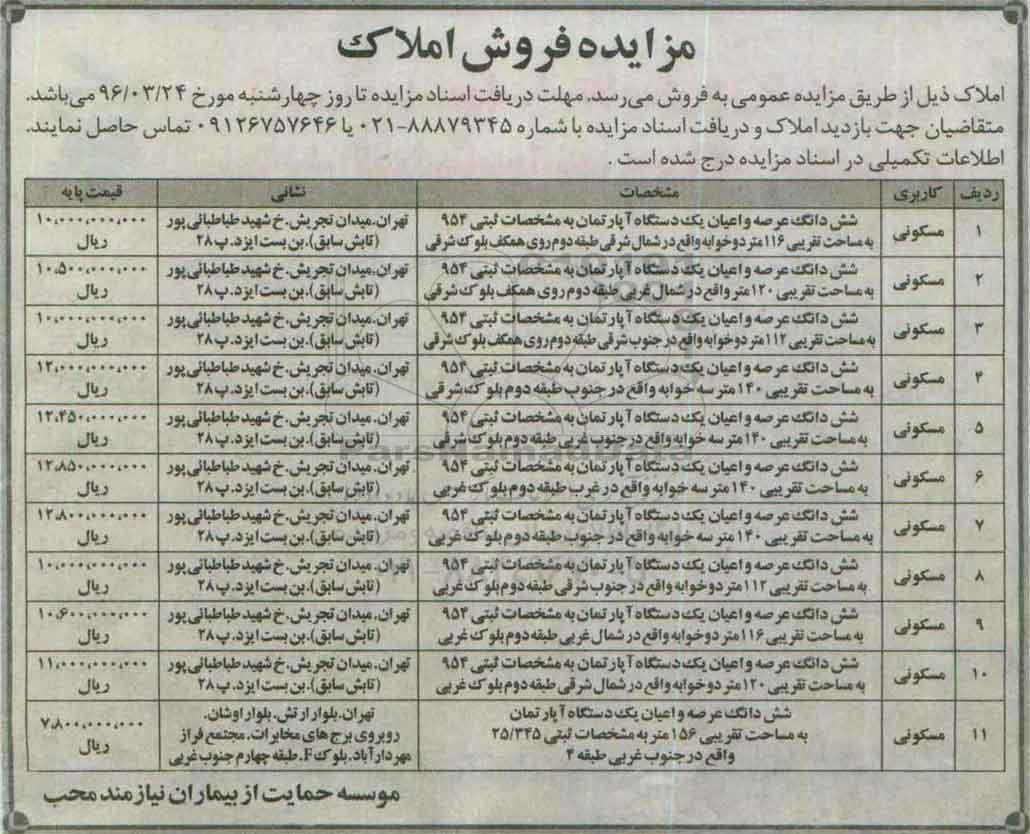 مزایده فروش املاک
املاک ذیل از طریق مزایده عمومی به فروش می‌رسد. مهلت دریافت اسناد مزایده تا روز چهارشنبه مورخ ۹۶/۰۳/۲۴ می‌باشد.
متقاضیان جهت بازدید املاک و دریافت اسناد مزایده با شماره ۸۸۸۷۹۳۴۵-۰۲۱ یا ۰۹۱۲۶۷۵۷۶۴۶ تماس حاصل نمایند.
اطلاعات تکمیلی در اسناد مزایده درج شده است .
ردیف کاربری مشخصات نشانی قیمت پایه
۱ مسکونی شش دانگ عرصه و اعیان یک دستگاه آپارتمان به مشخصات ثبتی ۹۵۴ تهران.میدان تجریش.خ شهید طباطبائی پور ۱۰،۰۰۰،۰۰۰،۰۰۰
به مساحت تقریبی ۱۱۶ متر دوخوابه واقع در شمال شرقی طبقه دوم روی همکف بلوک شرقی (تابش سابق).بن بست ایزد.پ ۲۸ ریال
۲ مسکونی شش دانگ عرصه و اعیان یک دستگاه آپارتمان به مشخصات ثبتی ۹۵۴ تهران.میدان تجریش.خ شهید طباطبائی پور ۱۰،۵۰۰،۰۰۰،۰۰۰
به مساحت تقریبی ۱۲۰ متر واقع در شمال غربی طبقه دوم روی همکف بلوک شرقی (تابش سابق).بن بست ایزد.پ ۲۸ ریال
۳ مسکونی شش دانگ عرصه و اعیان یک دستگاه آپارتمان به مشخصات ثبتی ۹۵۴ تهران.میدان تجریش.خ شهید طباطبائی پور ۱۰،۰۰۰،۰۰۰،۰۰۰
به مساحت تقریبی ۱۱۲ متر دوخوابه واقع در جنوب شرقی طبقه دوم روی همکف بلوک شرقی (تابش سابق).بن بست ایزد.پ ۲۸ ریال
۴ مسکونی شش دانگ عرصه و اعیان یک دستگاه آپارتمان به مشخصات ثبتی ۹۵۴ تهران.میدان تجریش.خ شهید طباطبائی پور ۱۲،۰۰۰،۰۰۰،۰۰۰
به مساحت تقریبی ۱۴۰ متر سه خوابه واقع در جنوب طبقه دوم بلوک شرقی (تابش سابق).بن بست ایزد.پ ۲۸ ریال
۵ مسکونی شش دانگ عرصه و اعیان یک دستگاه آپارتمان به مشخصات ثبتی ۹۵۴ تهران.میدان تجریش.خ شهید طباطبائی پور ۱۲،۴۵۰،۰۰۰،۰۰۰
به مساحت تقریبی ۱۴۰ متر سه خوابه واقع در جنوب غربی طبقه دوم بلوک شرقی (تابش سابق).بن بست ایزد.پ ۲۸ ریال
۶ مسکونی شش دانگ عرصه و اعیان یک دستگاه آپارتمان به مشخصات ثبتی ۹۵۴ تهران.میدان تجریش.خ شهید طباطبائی پور ۱۲،۸۵۰،۰۰۰،۰۰۰
به مساحت تقریبی ۱۴۰ متر سه خوابه واقع در غرب طبقه دوم بلوک غربی (تابش سابق).بن بست ایزد.پ ۲۸ ریال
۷ مسکونی شش دانگ عرصه و اعیان یک دستگاه آپارتمان به مشخصات ثبتی ۹۵۴ تهران.میدان تجریش.خ شهید طباطبائی پور ۱۲،۸۰۰،۰۰۰،۰۰۰
به مساحت تقریبی ۱۴۰ متر سه خوابه واقع در جنوب طبقه دوم بلوک غربی (تابش سابق).بن بست ایزد.پ ۲۸ ریال
۸ مسکونی شش دانگ عرصه و اعیان یک دستگاه آپارتمان به مشخصات ثبتی ۹۵۴ تهران.میدان تجریش.خ شهید طباطبائی پور ۱۰،۰۰۰،۰۰۰،۰۰۰
به مساحت تقریبی ۱۱۲ متر دوخوابه واقع در جنوب شرقی طبقه دوم بلوک غربی (تابش سابق).بن بست ایزد.پ ۲۸ ریال
۹ مسکونی شش دانگ عرصه و اعیان یک دستگاه آپارتمان به مشخصات ثبتی ۹۵۴ تهران.میدان تجریش.خ شهید طباطبائی پور ۱۰،۶۰۰،۰۰۰،۰۰۰
به مساحت تقریبی ۱۱۶ متر دوخوابه واقع در شمال غربی طبقه دوم بلوک غربی (تابش سابق).بن بست ایزد.پ ۲۸ ریال
۱۰ مسکونی شش دانگ عرصه و اعیان یک دستگاه آپارتمان به مشخصات ثبتی ۹۵۴ تهران.میدان تجریش.خ شهید طباطبائی پور ۱۱،۰۰۰،۰۰۰،۰۰۰
به مساحت تقریبی ۱۲۰ متر دوخوابه واقع در شمال شرقی طبقه دوم بلوک غربی (تابش سابق).بن بست ایزد.پ ۲۸ ریال
۱۱ مسکونی شش دانگ عرصه و اعیان یک دستگاه آپارتمان تهران.بلوار ارتش.بلوار اوشان. ۷،۸۰۰،۰۰۰،۰۰۰
به مساحت تقریبی ۱۵۶ متر به مشخصات ثبتی ۲۵/۳۴۵ روبروی برج های مخابرات.مجتمع فراز ریال
واقع در جنوب غربی طبقه ۴ مهردارآباد.بلوک F.طبقه چهارم جنوب غربی
موسسه حمایت از بیماران نیازمند محب
ParsNamadData